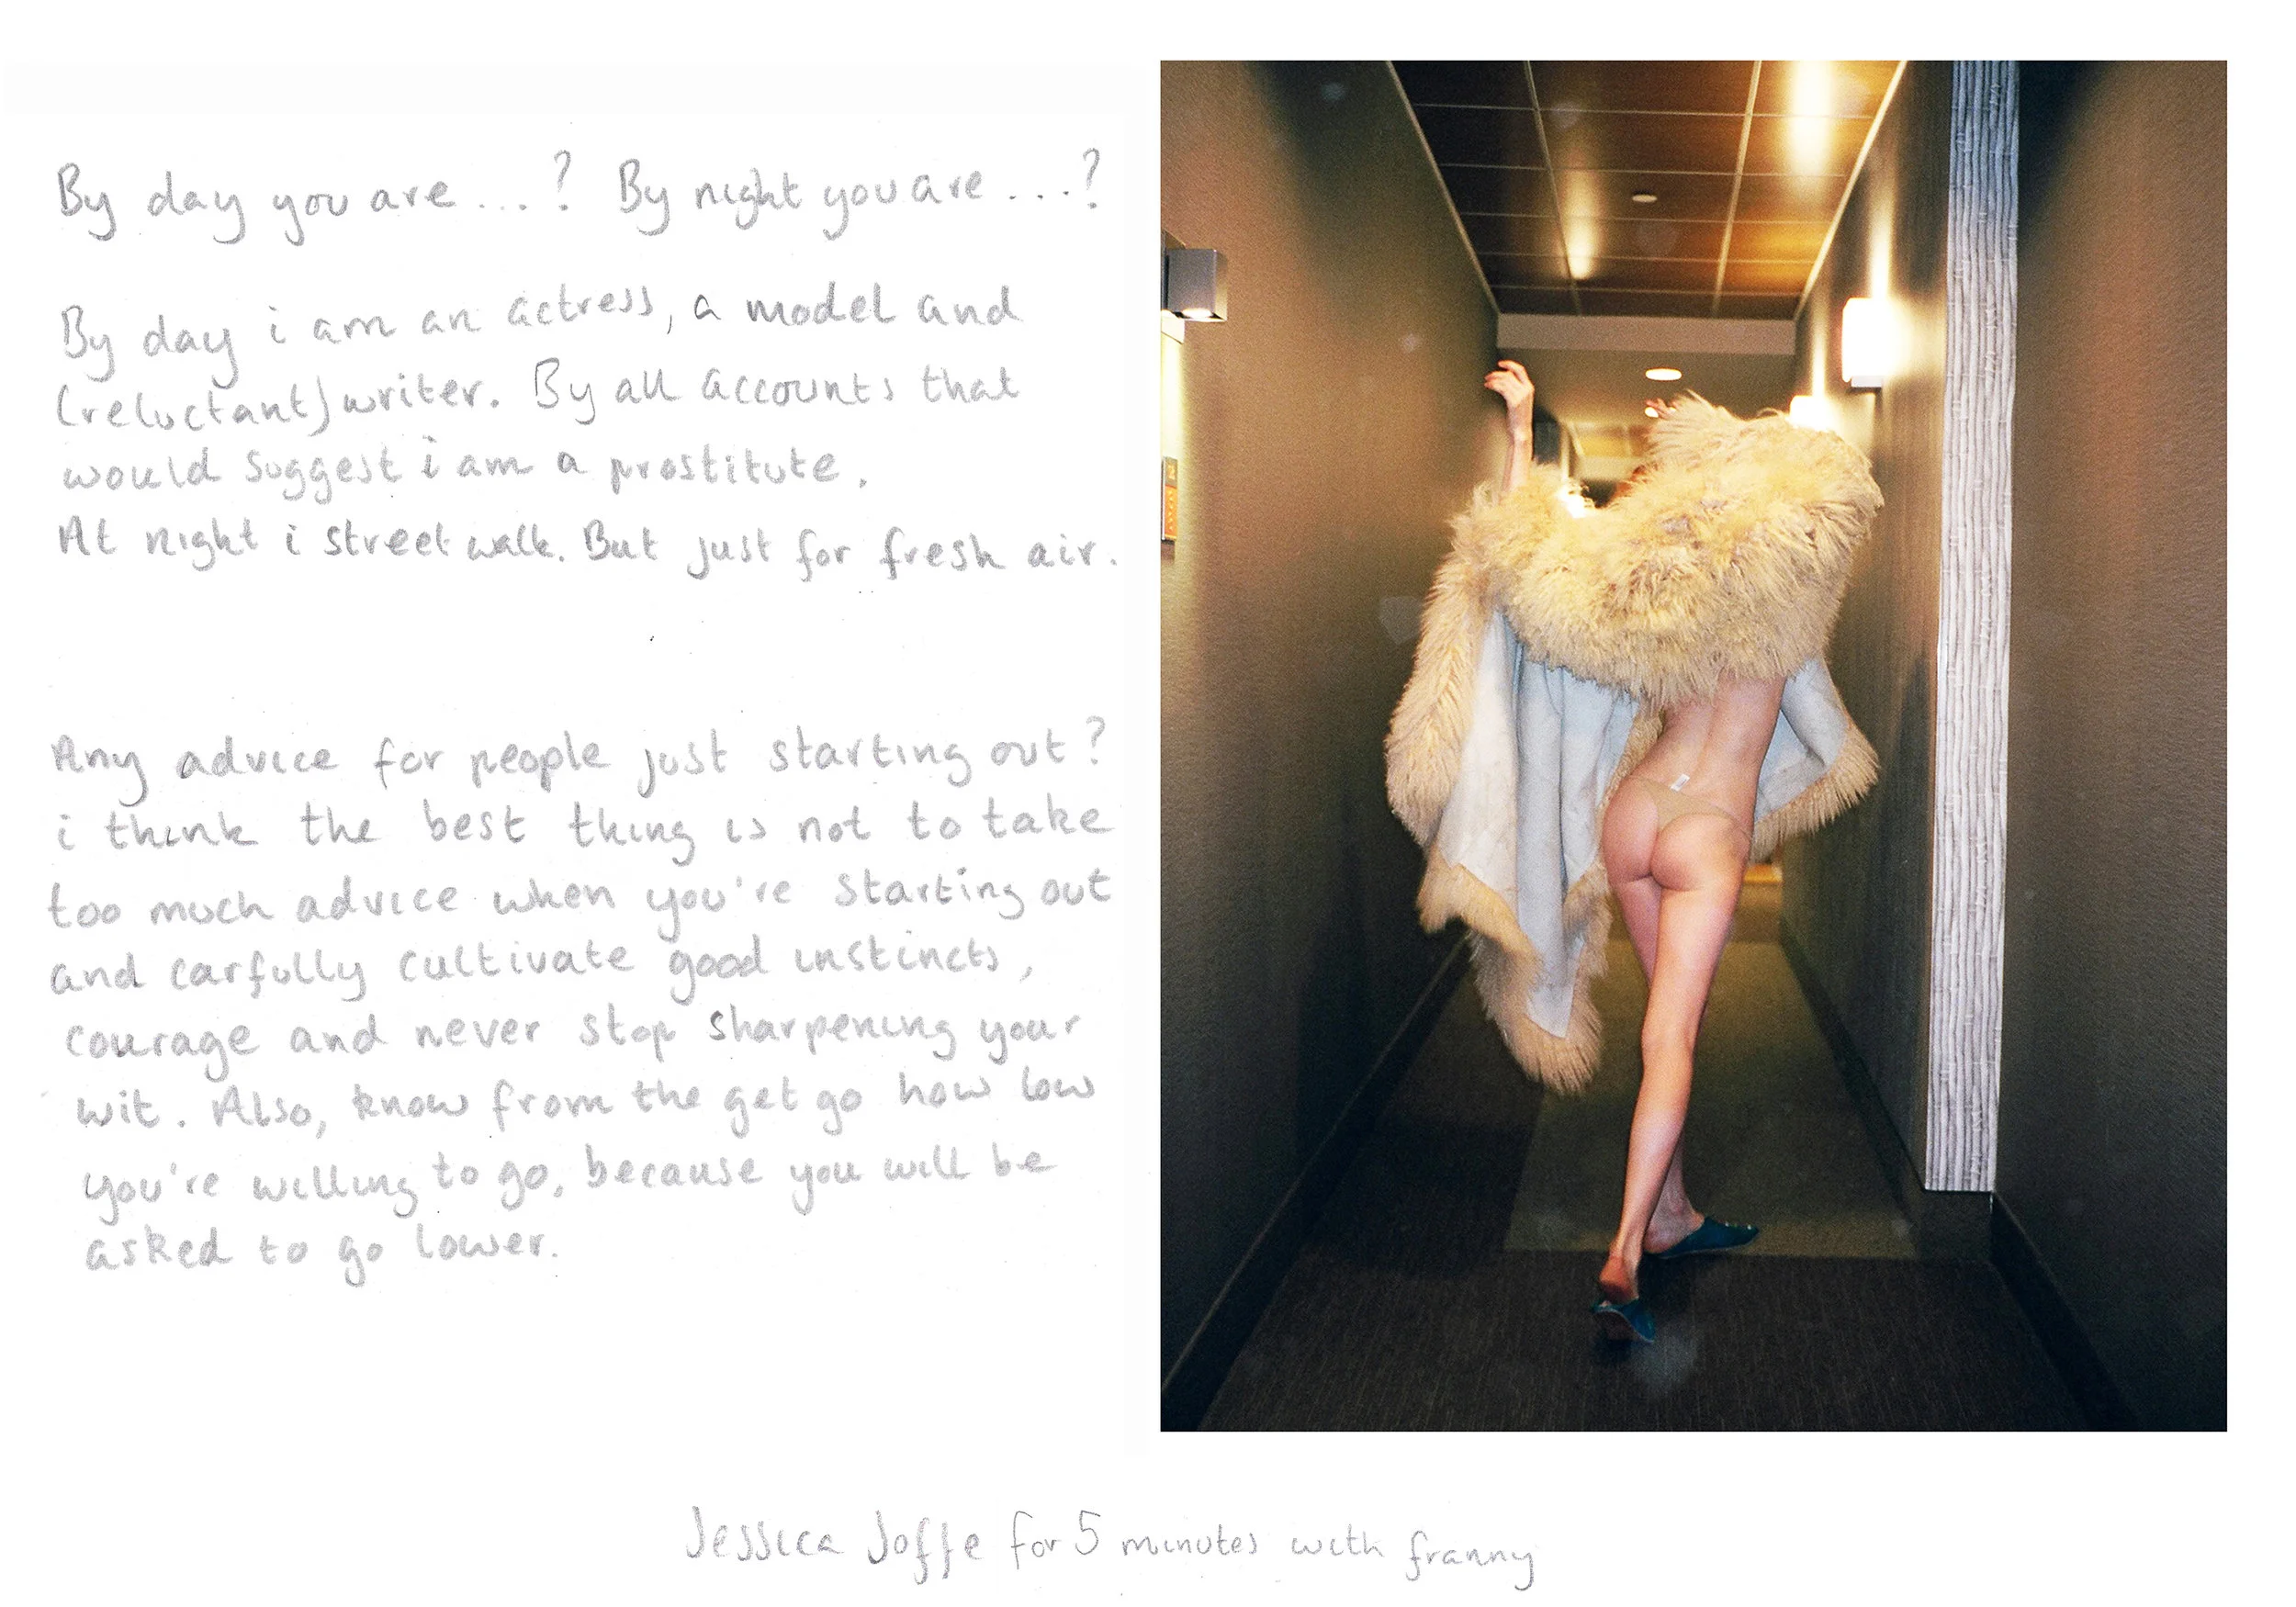 By day you are ...? By night you are ...?
By day i am an actress, a model and
(reluctant) writer. By all accounts that
would suggest i am a prostitute.
At night i street walk. But just for fresh air.
Any advice for people just starting out?
i think the best thing is not to take
too much advice when you're starting out
and carfully cultivate good instincts,
courage and never stop sharpening your
wit. Also, know from the get go how low
you're willing to go, because you will be
asked to go lower.
Jessica Joffe for 5 minutes with franny